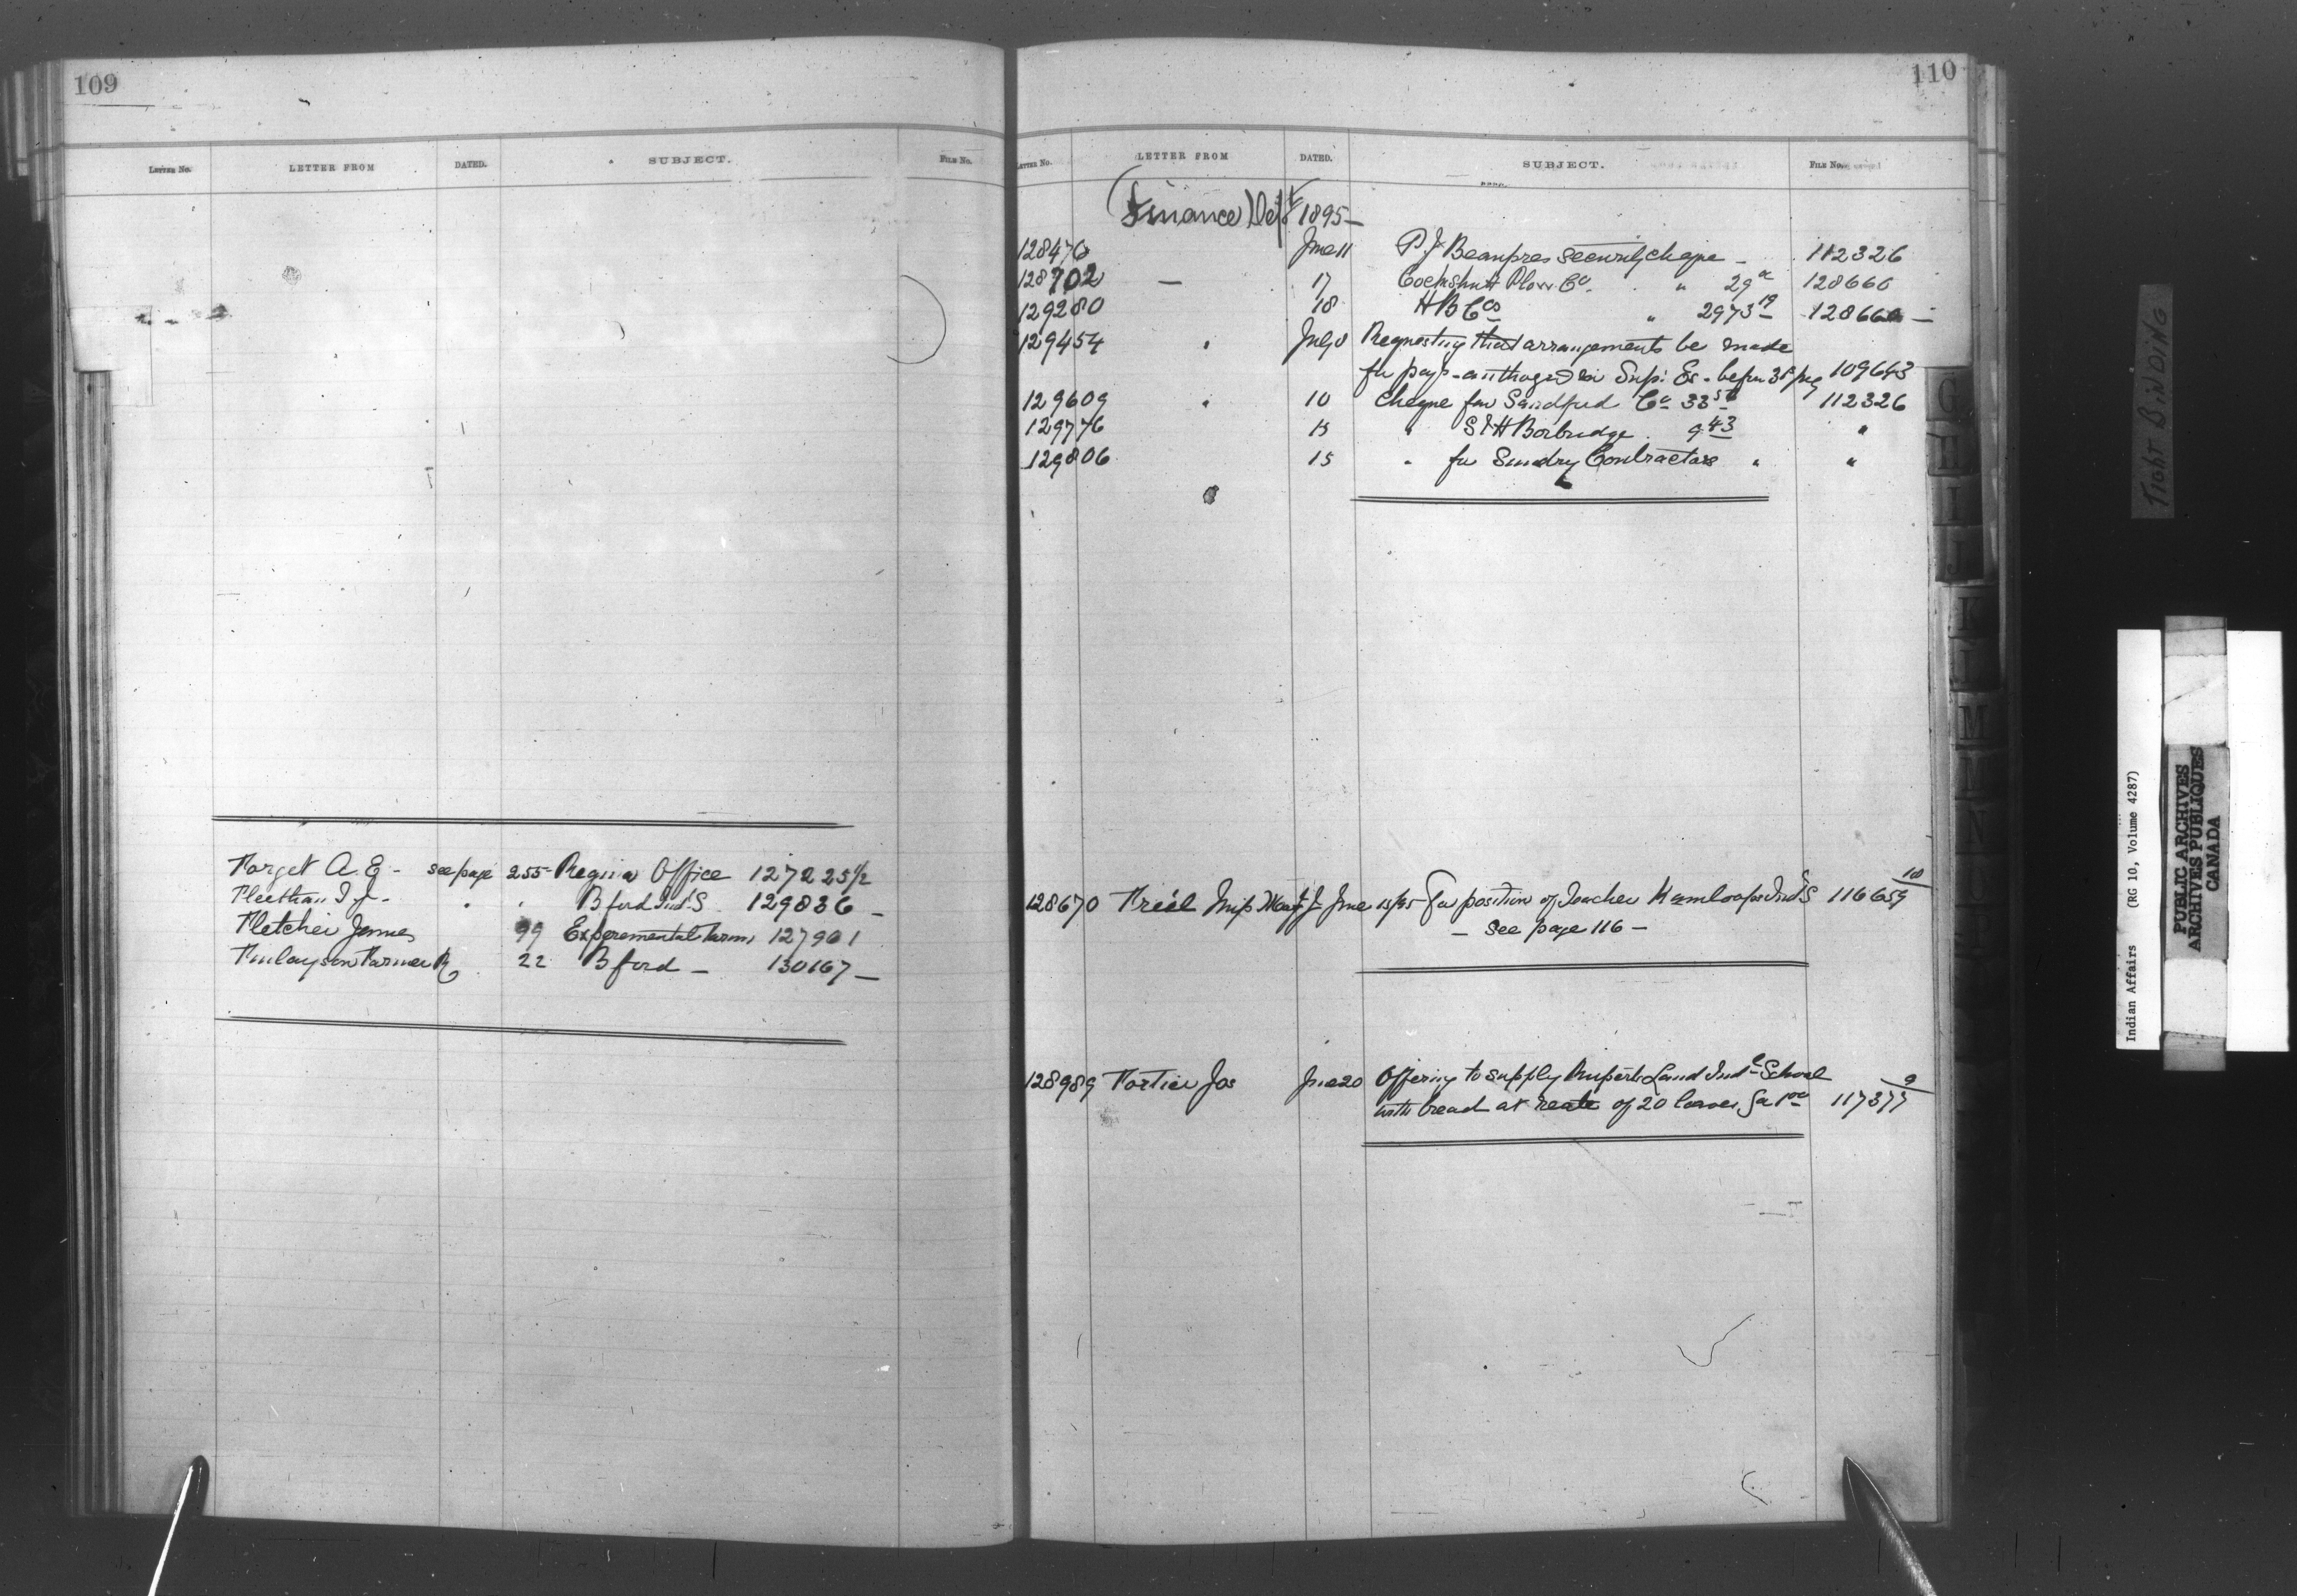 109
LETTER No. LETTER FROM DATED. SUBJECT. FILE No.
Forget A. E. - see page 255 Regina Office 127225 1/2
" " B ford Ind. S 129836 -
Fletcher James 99 Experemental Farms 127901
Finlayson Farmer R 22 B ford - 130167 -
110
LETTER No. LETTER FROM DATED. SUBJECT. FILE No.
Finance Dept 1895 -
128476 June 11 P. J. Beaupres security cheque - 112326
128702 - 17 Cockshutt Plow Co. " 29 128660
129280 18 H B Cos " 2973 19 128660 -
129454 " July 8 Requesting that arrangements be made
for in Sup. Es. before 109643
129609 " 10 Cheque for Sandford Co 33 112326
129776 " S & H Borbridge. 9 43 "
129806 15 " for Sundry Contractors " "
128670 Miss June 15/95 For position of Teacher Kamloops Ind S 116659 10
- See page 116 -
128989 Fortier Jos June 20 Offering to supply Ruperts Land Indl School
with bread at reate of 20 loaves for 1 00 117377 9
G
H
I
J
K
L
M
N
TIGHT BINDING
Indian Affairs (RG 10, Volume 4287)
PUBLIC ARCHIVES
ARCHIVES PUBLIQUES
CANADA